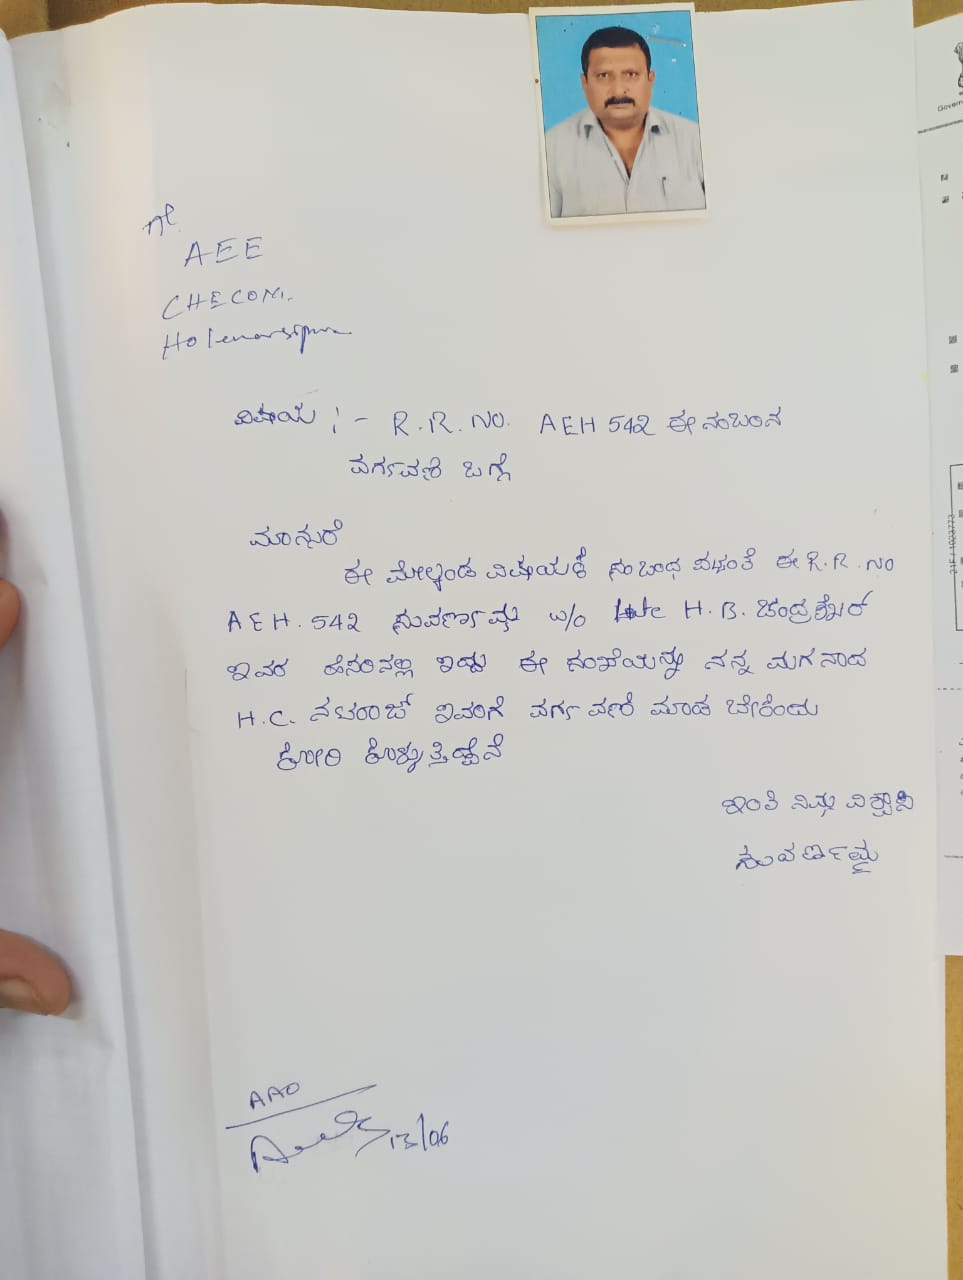 AEE
CHECOM.
Holenarsipura
ವಿಷಯ :- R.R.NO. AEH 542 ಈ ನಂಬರಿನ
ವರ್ಗಾವಣೆ ಬಗ್ಗೆ
ಮಾನ್ಯರೆ
ಈ ಮೇಲ್ಕಂಡ ವಿಷಯಕ್ಕೆ ಸಂಬಂಧ ಪಟ್ಟಂತೆ ಈ R.R. NO
AEH. 542 ಸುವರ್ಣಮ್ಮ w/o late H.B. ಚಂದ್ರಶೇಖರ್
ಇವರ ಹೆಸರಿನಲ್ಲಿ ಇದ್ದು ಈ ಸಂಖ್ಯೆಯನ್ನು ನನ್ನ ಮಗನಾದ
H.C. ನಟರಾಜ್ ಇವರಿಗೆ ವರ್ಗಾವಣೆ ಮಾಡ ಬೇಕೆಂದು
ಕೋರಿ ಕೊಳ್ಳುತ್ತಿದ್ದೇನೆ
ಇಂತಿ ನಿಮ್ಮ ವಿಶ್ವಾಸಿ
ಸುವರ್ಣಮ್ಮ
AAO
13/06